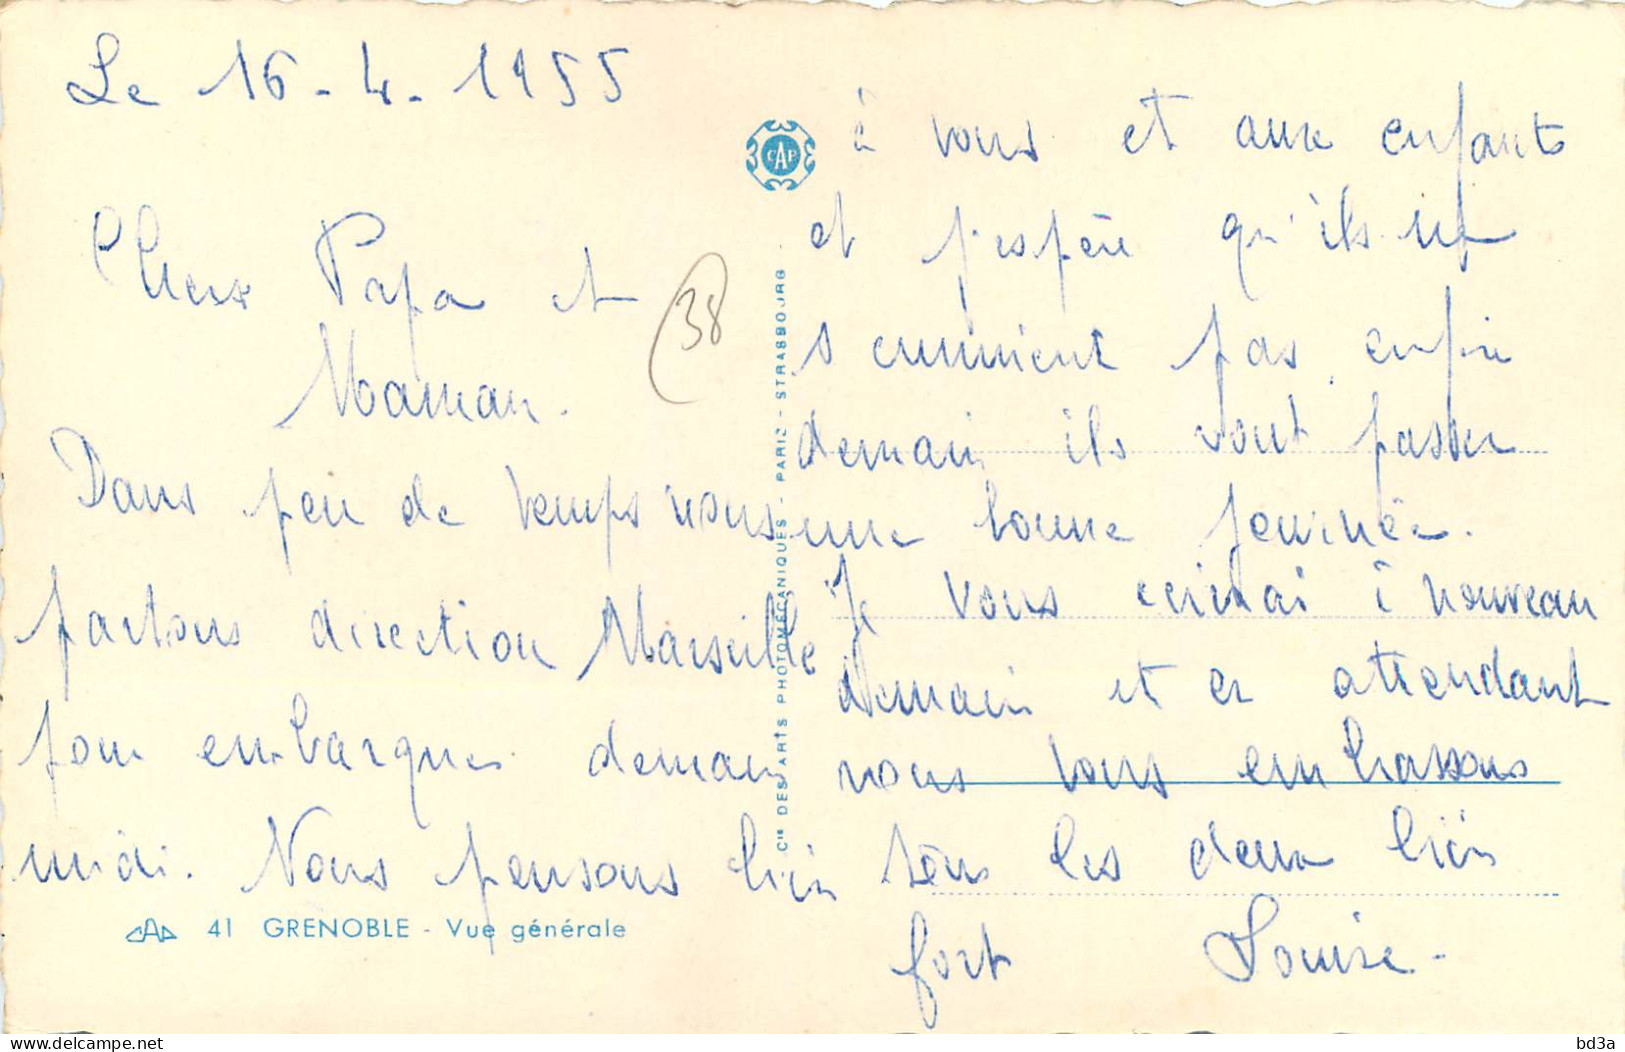 Le 16-4-1955
Chers Papa et
Maman.
Dans peu de temps nous
partons direction Marseille
pour embarquer demain
midi. Nous pensons bien
à vous et aux enfants
et j'espère qu'ils ne
s'ennuient pas enfin
demain ils vont passer
une bonne journée.
Je vous ecrirai à nouveau
demain et en attendant
nous vous embrassons
tous les deux bien
fort Louise-
38
CAP
Cie DES ARTS PHOTOMÉCANIQUES - PARIS - STRASBOURG -
CAP 41 GRENOBLE - Vue générale
delcampe.net
bd3a